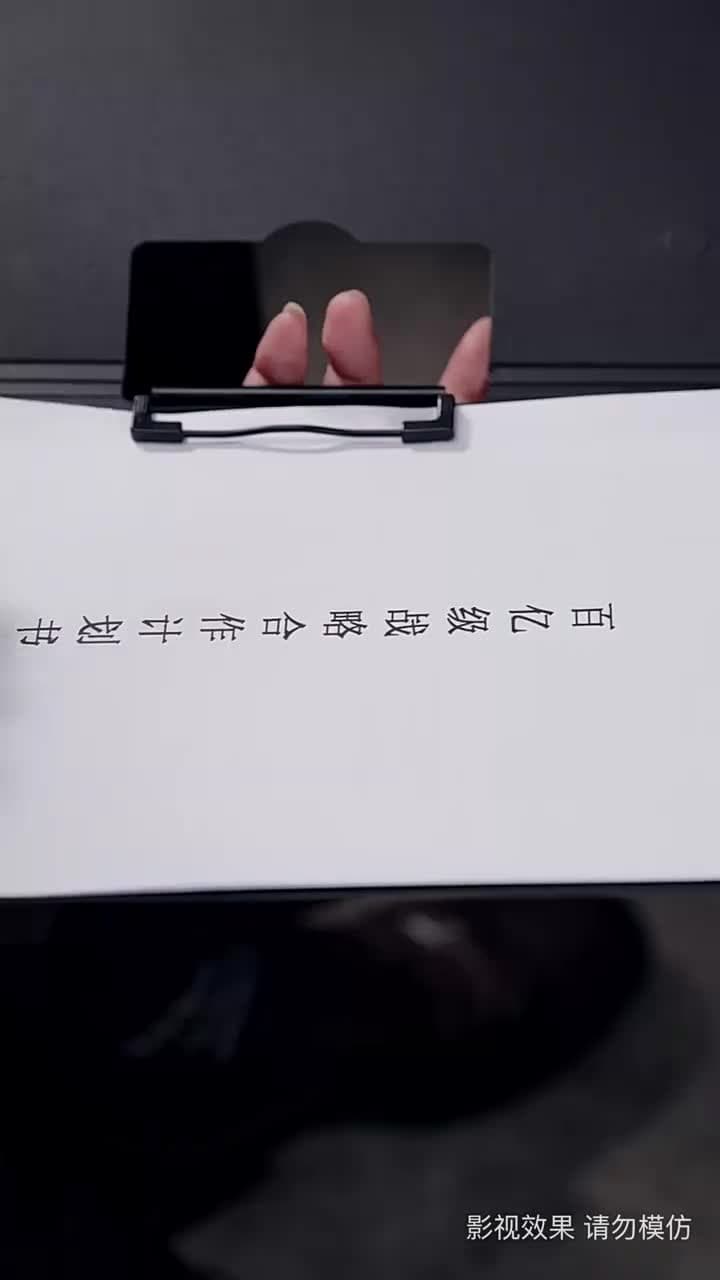 百亿级战略合作计划书
影视效果 请勿模仿